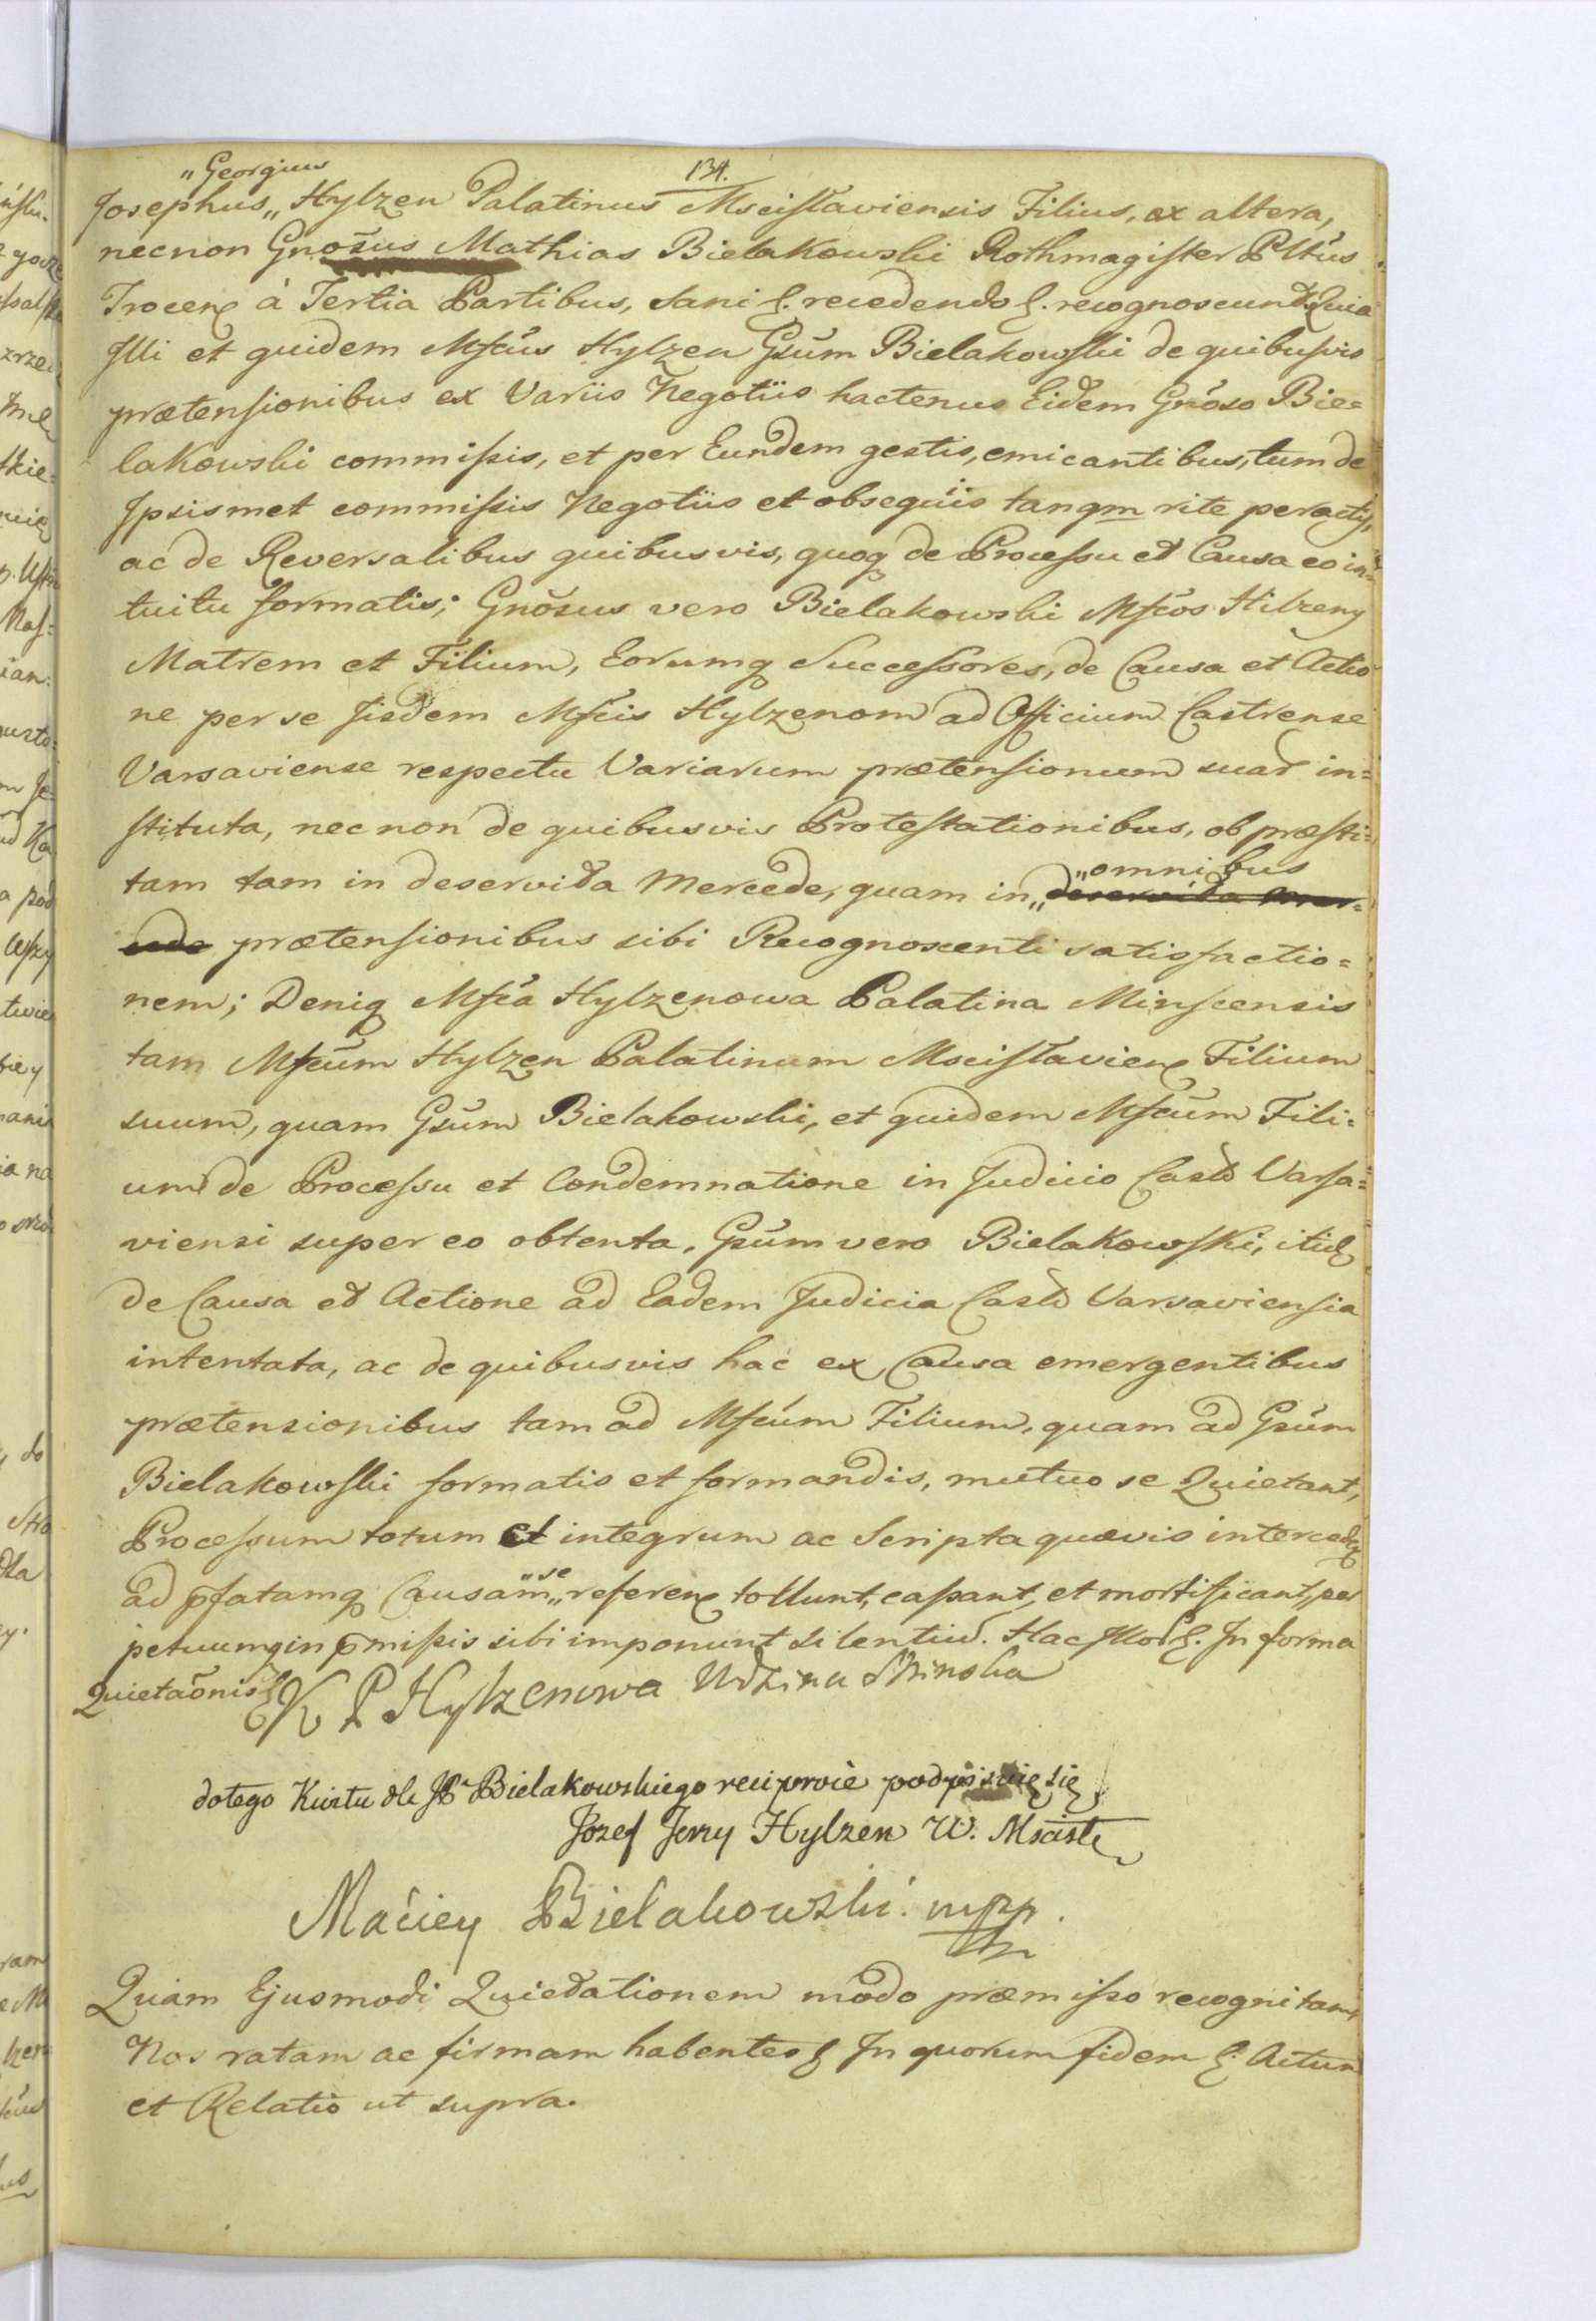 134.
„Georgius
Josephus„ Hylzen Palatinus Mscislaviensis Filius, ex altera,
necnon Gnosus Mathias Bielakowski Rothmagister Pltus
Trocen à Tertia Partibus, sani &. recedendo &. recognoscunt Quia
Illi et quidem Mfcus Hylzen Gsum Bielakowski de quibusvis
prætensionibus ex Variis Negotiis hactenus Eidem Gnoso Bie=
lakowski commissis, et per Eundem gestis, emicantibus, tum de
Ipsismet commissis Negotiis et obsequiis tanqm rite peractis,
ac de Reversalibus quibusvis, quoq de Processu et Causa eo in=
tuitu formatis; Gnosus vero Bielakowski Mfcos Hilzeny
Matrem et Filium, Eorumq Successores, de Causa et Actio
ne per se Iisdem Mfcis Hylzenom ad Officium Castrense
Varsaviense respectu Variarum prætensionum suar in=
stituta, necnon de quibusvis Protestationibus, ob præsti=
tam tam in deservita Mercede, quam in„ „omnibus deservita mer=
cede prætensionibus sibi Recognoscenti satisfactio=
nem; Deniq Mfca Hylzenowa Palatina Minscensis
tam Mfcum Hylzen Palatinum Mscislavien Filium
suum, quam Gsum Bielakowski, et quidem Mfcum Fili=
um de Processu et Condemnatione in Judicio Castr Varsa=
viensi super eo obtenta, Gsum vero Bielakowski, itid
de Causa et Actione ad Eadem Judicia Castr Varsaviensia
intentata, ac de quibusvis hac ex Causa emergentibus
prætensionibus tam ad Mfcum Filium, quam ad Gsum
Bielakowski formatis et formandis, mutuo se Quietant,
Processum totum et integrum ac Scripta quævis interced
ad pfatamq Causam „se„ referen tollunt, cassant, et mortificant, per
petuumq in pmissis sibi imponunt silentiu. Hac Mod &. In forma
Quietaonis &
K P Hylzenowa Wdzina Minska
dotego Kwitu dla JP Bielakowskiego reciproce podpisuię się
Jozef Jerzy Hylzen W. Mscisl
Maciey Bielakowski mpp.
Quam Ejusmodi Quietationem modo præmisso recognitam,
Nos ratam ac firmam habentes & In quorum fidem &. Actum
et Relatio ut supra.